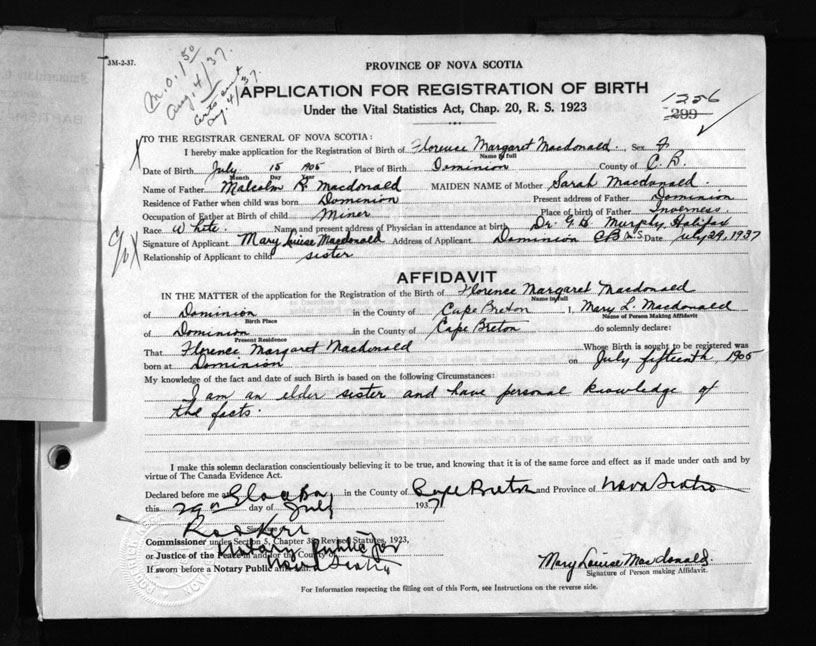 3M-2-37.
M.O. 1.50
Aug. 4/37.
Aug. 4/37.
PROVINCE OF NOVA SCOTIA
APPLICATION FOR REGISTRATION OF BIRTH
Under the Vital Statistics Act, Chap. 20, R. S. 1923
1256
299
TO THE REGISTRAR GENERAL OF NOVA SCOTIA:
I hereby make application for the Registration of Birth of Florence Margaret Macdonald. Sex F
Name in full
Date of Birth July 15 1905, Place of Birth Dominion County of C. B.
Month Day Year
Name of Father Malcolm R. Macdonald MAIDEN NAME of Mother Sarah Macdonald.
Residence of Father when child was born Dominion Present address of Father Dominion
Occupation of Father at Birth of child Miner Place of birth of Father Inverness
Race White. Name and present address of Physician in attendance at birth Dr. G. H. Murphy, Halifax
Signature of Applicant Mary Louise Macdonald Address of Applicant Dominion C B N.S Date July 29, 1937
Relationship of Applicant to child sister
AFFIDAVIT
IN THE MATTER of the application for the Registration of the Birth of Florence Margaret Macdonald
Name in full
of Dominion in the County of Cape Breton I, Mary L. Macdonald
Birth Place Name of Person Making Affidavit
of Dominion in the County of Cape Breton do solemnly declare:
Present Residence
That Florence Margaret Macdonald Whose Birth is sought to be registered was
born at Dominion on July fifteenth, 1905
My knowledge of the fact and date of such Birth is based on the following Circumstances:
I am an elder sister and have personal knowledge of
the facts.
I make this solemn declaration conscientiously believing it to be true, and knowing that it is of the same force and effect as if made under oath and by
virtue of The Canada Evidence Act.
Declared before me at Glace Bay in the County of Cape Breton and Province of Nova Scotia
this 29th day of July 1937
Commissioner under Section 5, Chapter 38, Revised Statutes, 1923,
or Justice of the Peace in and for the County of
Notary Public for
Nova Scotia
If sworn before a Notary Public
Mary Louise MacDonald.
Signature of Person making Affidavit.
For Information respecting the filling out of this Form, see Instructions on the reverse side.